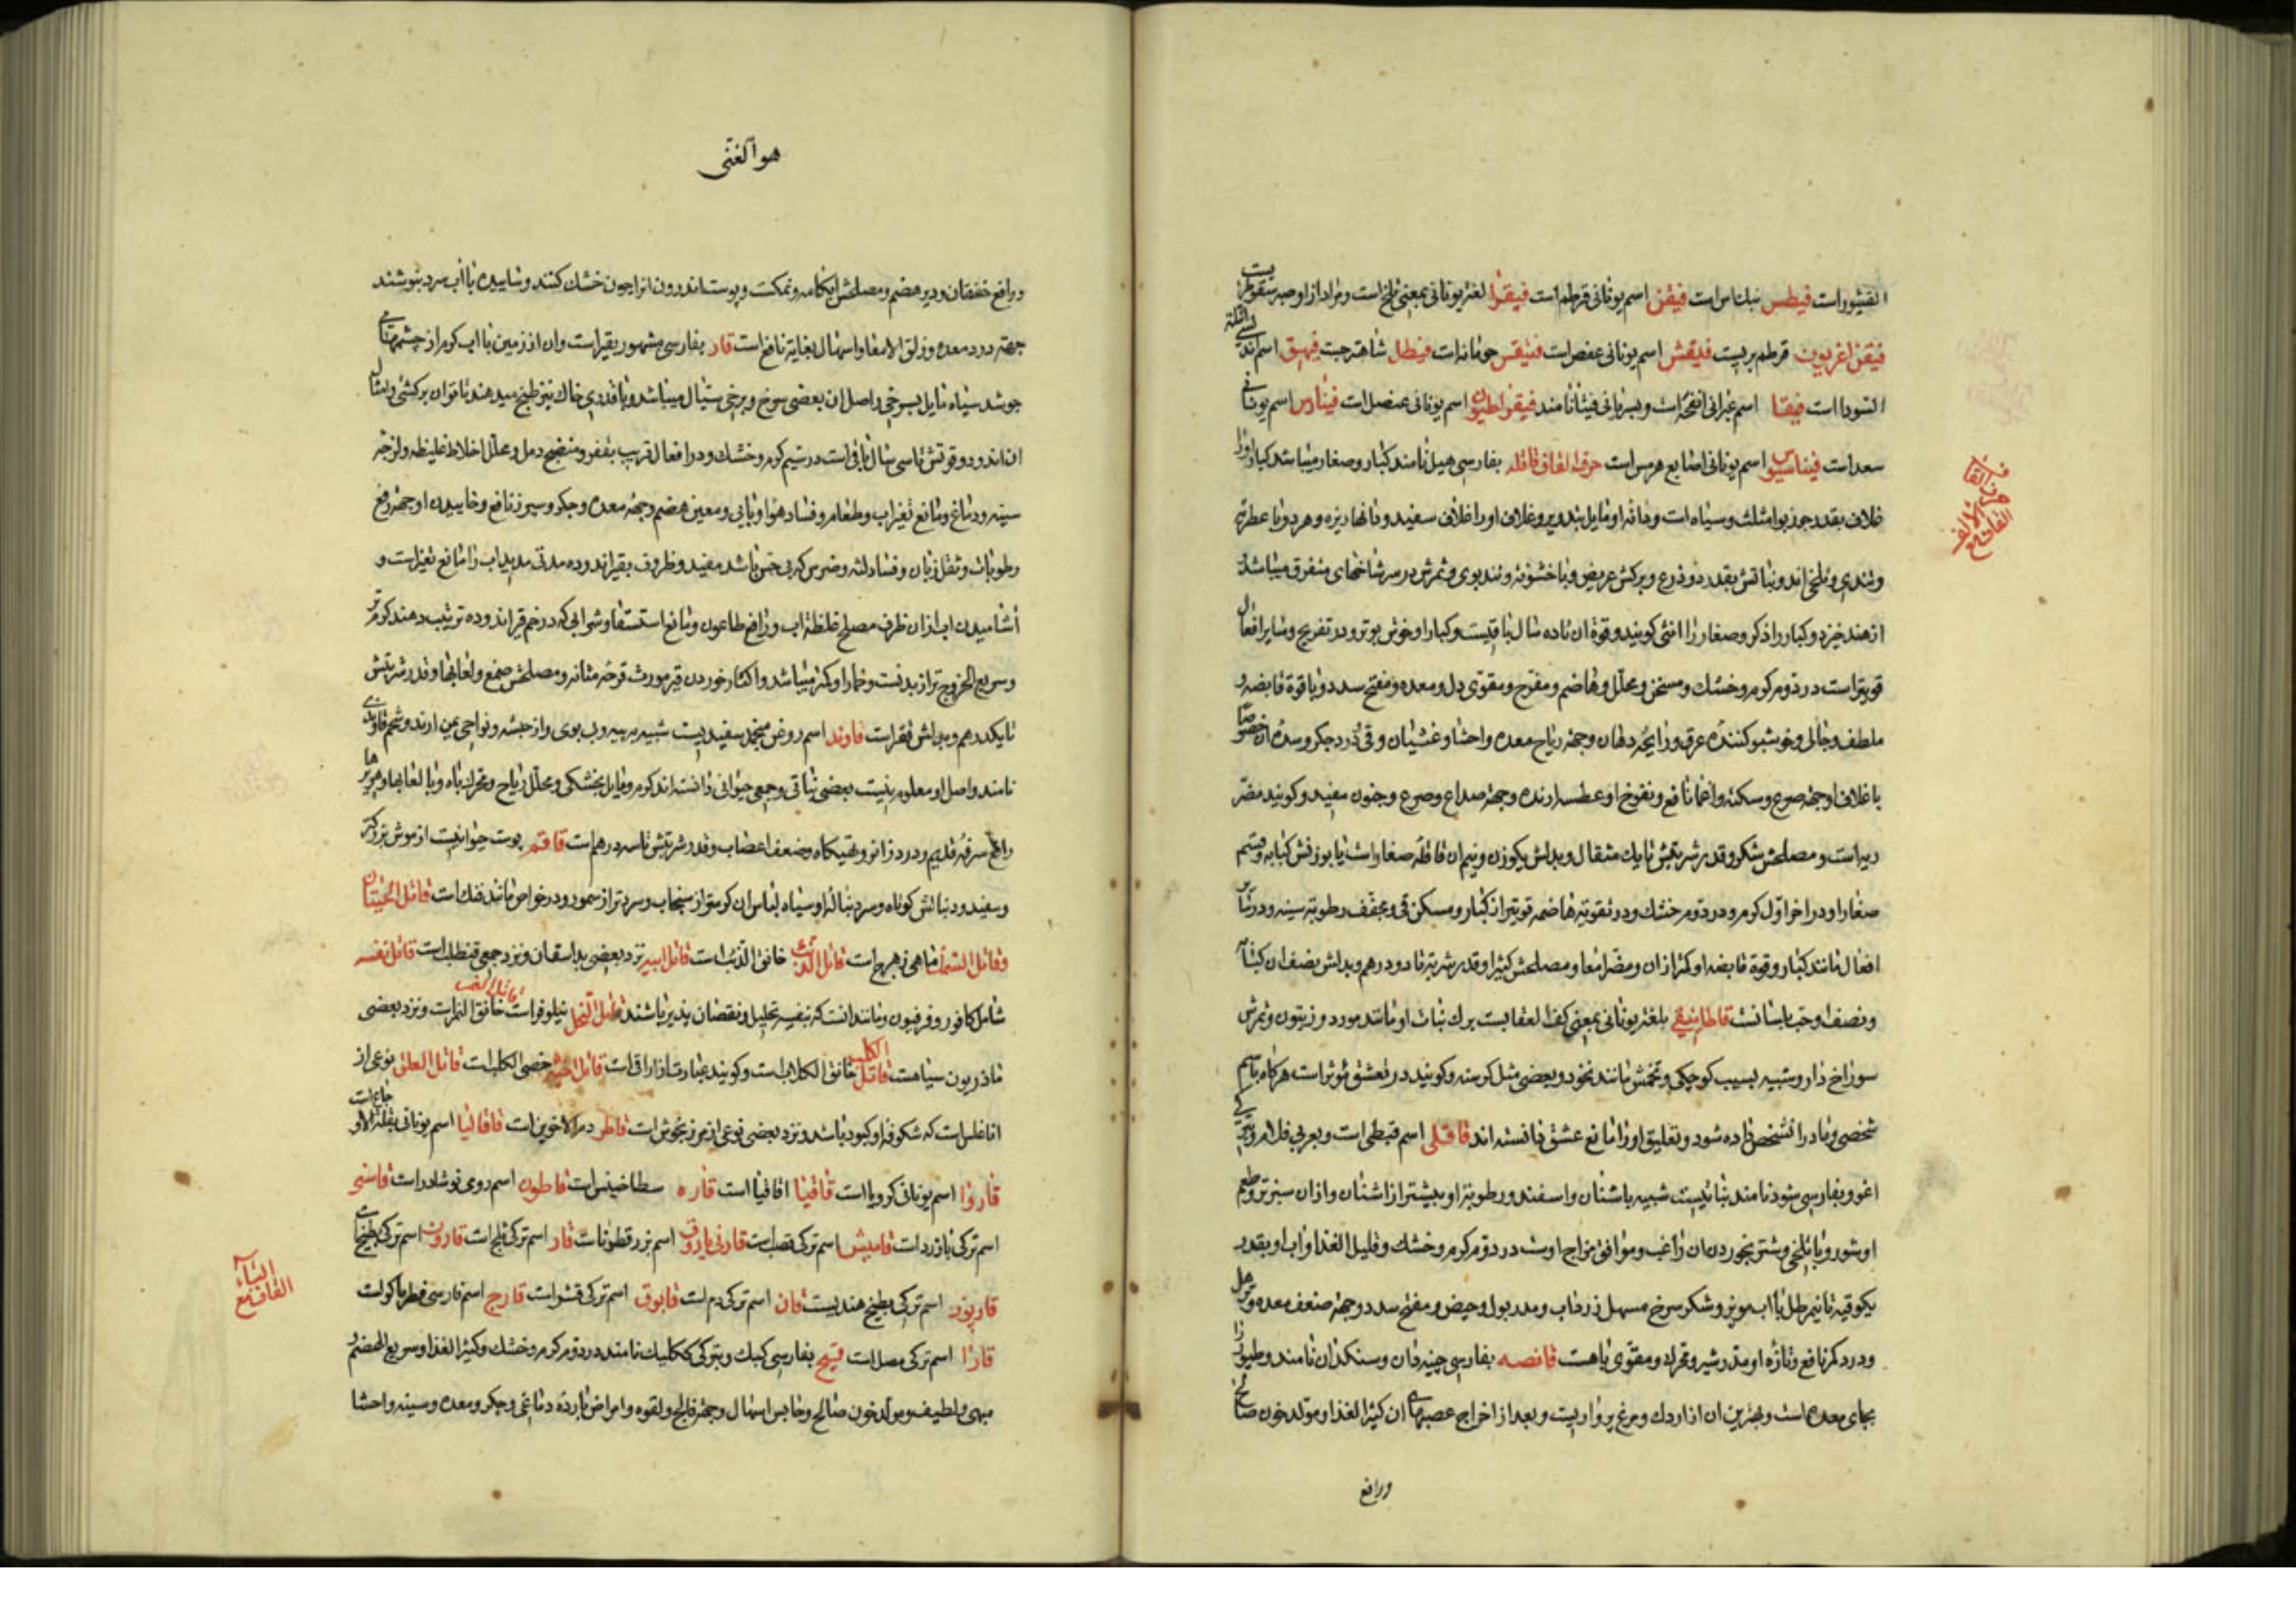 الفیثور است فیطس نبک ناس است فیقن اسم یونانی قرطم است فیقرا لغة یونانی بمعنی تلخ است و مراد از او صبر سقوطریست
فیقن اغریون قرطم بریست فدیقش اسم یونانی عفص است فیطل شاهترجست فیهق اسم
السودا است فیقنا اسم عبرانی انفحه است و بسریانی فیثانا نامند فیقراطیون اسم یونانی عنصل است فینارس اسم یونانی
سعد است فیناسیوس اسم یونانی اصابع هرمس است حرف القاف قاقله بفارسی هیل نامند کبار و صغار میباشد کبار او را
غلاف بقدر جوز بوا مثلث و سیاه است و دانه او مایل بتدویر و غلاف او را غلاف سفید و دانها ریزه و هر دو با عطریة
و تندی و تلخی اند و نباتش بقدر دو ذرع و برکش عریض و با خشونة و تند بوی و ثمرش در سر شاخهای متفرق میباشد و
از هند خیزد و کبار را ذکر و صغار را انثی کویند و قوة ان تا ده سال باقیست و کبار او خوش بوتر و در تفریح و سایر افعال
قویتر است در دوم کرم و خشک و مسخن و محلل و هاضم و مفرح و مقوی دل و معده و مفتح سدد و با قوة قابضه و
ملطف و جالی و خوشبو کننده عرق و رایحه دهان و جهة ریاح معده و احشا و غشیان و قی و درد جکر و سده ان خصوصا
با غلاف او جهة صرع و سکته و اغما نافع و نفوخ او عطسه ارنده و جهة صداع و صرع و جنون مفید و کویند مضر
ریه است و مصلحش شکر و قدر شربتش تا یک مثقال و بدلش بکوزن و نیم ان قاقله صغار است یا بوزنش کبابه و قسم
صغار او در اخر اول کرم و در دوم خشک و در تقویة هاضمه قویتر از کبار و مسکن قی و مجفف رطوبة سینه و در سایر
افعال مانند کبار و قوة قابضه او کمتر از ان و مضر امعا و مصلحش کتیرا و قدر شربة تا دو درهم و بدلش بنصف ان کبابه
و نصف او حب بلسانست قاطانیقی بلغة یونانی بمعنی کف العقابست برک نبات او مانند مورد و زیتون و ثمرش
سوراخ دار و شبیه بسیب کوچکی و تخمش مانند نخود و بعضی مثل کرسنه و کویند در تعشق مؤثر است هرکاه باسم
شخصی و مادر انشخص داده شود و تعلیق او را مانع عشق دانسته اند قاقلی اسم قبطی است و بعربی قلام و
اغو و بفارسی شور نامند نباتیست شبیه باشنان و اسفند و رطوبة او بیشتر از اشنان و ازان سبزتر و طعم
او شور و با تلخی و شتر بخوردن ان راغب و موافق مزاج اوست در دوم کرم و خشک و قلیل الغذا و اب او بقدر
یکوقیه تا نیم رطل با اب مویز و شکر سرخ مسهل زرداب و مدر بول و حیض و مفتح سدد و جهة ضعف معده و ترهل
و درد کمر نافع و تازه او مدر شیر و محرک و مقوی باهست قانصه بفارسی چینه دان و سنکدان نامند و طیور را
بجای معده است و بهترین ان از اردک و مرغ پرواریست و بعد از اخراج عصبهای ان کثیر الغذا و مولد خون صالح
ورافع
حرف القاف
القاف مع الالف
هو الغنی
و رافع خفقان و دیر هضم و مصلحش ابکامه و نمکست و پوست اندرون انرا چون خشک کنند و ساییده با اب سرد بنوشند
جهة درد معده و زلق الامعا و اسهال بغایة نافع است قار بفارسی مشهور بقیر است و ان از زمین با اب کرم از چشمهای
جوشد سیاه مایل بسرخی و اصل ان بعضی سرخ و برخی سیال میباشد و با قدری خاک نیز طبخ میدهند تا قوان بر کشتی و امثال
ان اندود و قوتش تا سی سال باقی است در سیم کرم و خشک و در افعال قریب بقفر و منضج دمل و محلل اخلاط غلیظه و لزجه
سینه و دماغ و مانع تغیر اب و طعام و فساد هوا و وبایی و معین هضم و جهة معده و جکر و سپرز نافع و خاییدن او جهة رفع
رطوبات و ثقل زبان و فساد لثه و ضرس که بی حس باشد مفید و ظروف بقیر اندوده مدتی مدید اب را مانع تغیر است و
اشامیدن اب ازان ظرف مصلح غلظة اب و رافع طاعون و مانع استسقا و شرابی که در خم قیر اندوده ترتیب دهند کرم تر
و سریع الخروج تر از بدنست و خمار او کمتر میباشد و اکثار خوردن قیر مورث قرحه مثانه و مصلحش صمغ و لعابها و قدر شربتش
تا یکدرهم و بدلش قفر است قاوند اسم روغن منجمد سفیدیست شبیه به پیه و بی بوی و از حبشه و نواحی یمن ارند و شحم قاوندی
نامند و اصل او معلوم نیست بعضی نباتی و جمعی حیوانی دانسته اند کرم و مایل بخشکی و محلل ریاح و محرک باه و با لعابها و چربیها
رافع سرفه قدیم و درد زانو و تهیکاه و ضعف اعصاب و قدر شربتش تا سه درهم است قاقم پوست حیوانیست از موش بزرکتر
و سفید و دنبالش کوتاه و سر دنباله او سیاه لباس ان کرمتر از سنجاب و سردتر از سمور و در خواص مانند فنک است قاتل الحیتان
و قاتل السمک ماهی زهرج است قاتل الذئب خانق الذئب است قاتل ابیه نزد بعضی بداسقان و نزد جمعی قنطلب است قاتل نفسه
شامل کافور و فرفیون و مانند انست که بنفسه تحلیل و نقصان پذیر باشند قاتل النحل نیلوفر است قاتل النمر خانق النمر است و نزد بعضی
ماذریون سیاهست قاتل الکلب خانق الکلاب است و کویند عبارت از اراقی است قاتل اخیه خصی الکلب است قاتل العلق نوعی از
اناغلس است که شکوفه او کبود باشد و نزد بعضی نوعی از مرزنجوش است قاطر دم الاخوین است قاقالیا اسم یونانی بقلة الاوجاع است
قاروا اسم یونانی کرویا است قاقیا اقاقیا است قاره سطاخینس است قاطون اسم رومی نوشادر است قاسنی
اسم ترکی بارزد است قامیش اسم ترکی قصب است قارنی یاروق اسم بزرقطونا است قار اسم ترکی ثلج است قارون اسم ترکی بطیخ است
قارپوز اسم ترکی بطیخ هندیست قان اسم ترکی دم است قابوق اسم ترکی قشر است قارج اسم فارسی فطر ماکولست
قارا اسم ترکی مصل است قبج بفارسی کبک و بترکی ککلیک نامند در دوم کرم و خشک و کثیر الغذا و سریع الهضم و
مبهی و لطیف و مولد خون صالح و حابس اسهال و جهة فالج و لقوه و امراض بارده دماغی و جکر و معده و سینه و احشا
القاف مع الباء